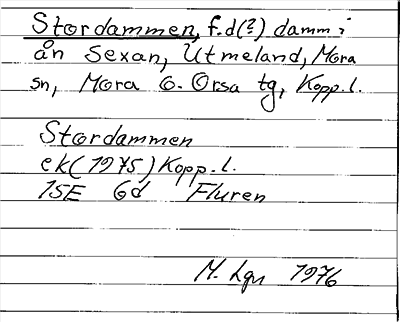 Stordammen, f.d(?) damm i
ån Sexan, Utmeland, Mora
sn, Mora o. Orsa tg, Kopp. l.
Stordammen
ek(1975) Kopp. l.
15E 6d Fluren
M. Lgn 1976